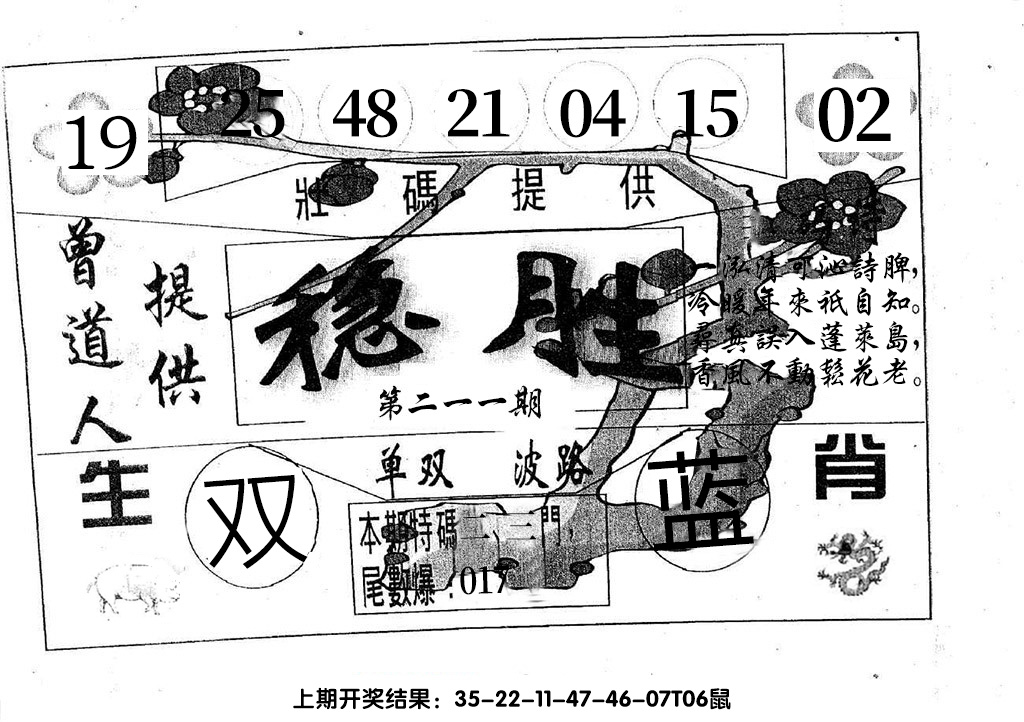 19 25 48 21 04 15 02
壯碼提供
曾道人
提供
稳胜
第二一一期
泓清可沁詩脾，
冷暖年來祇自知。
尋真誤入蓬萊島，
香風不動鬆花老。
生肖
单双 波路
双 蓝
本期特碼二、三門，
尾數爆：017
上期开奖结果：35-22-11-47-46-07T06鼠